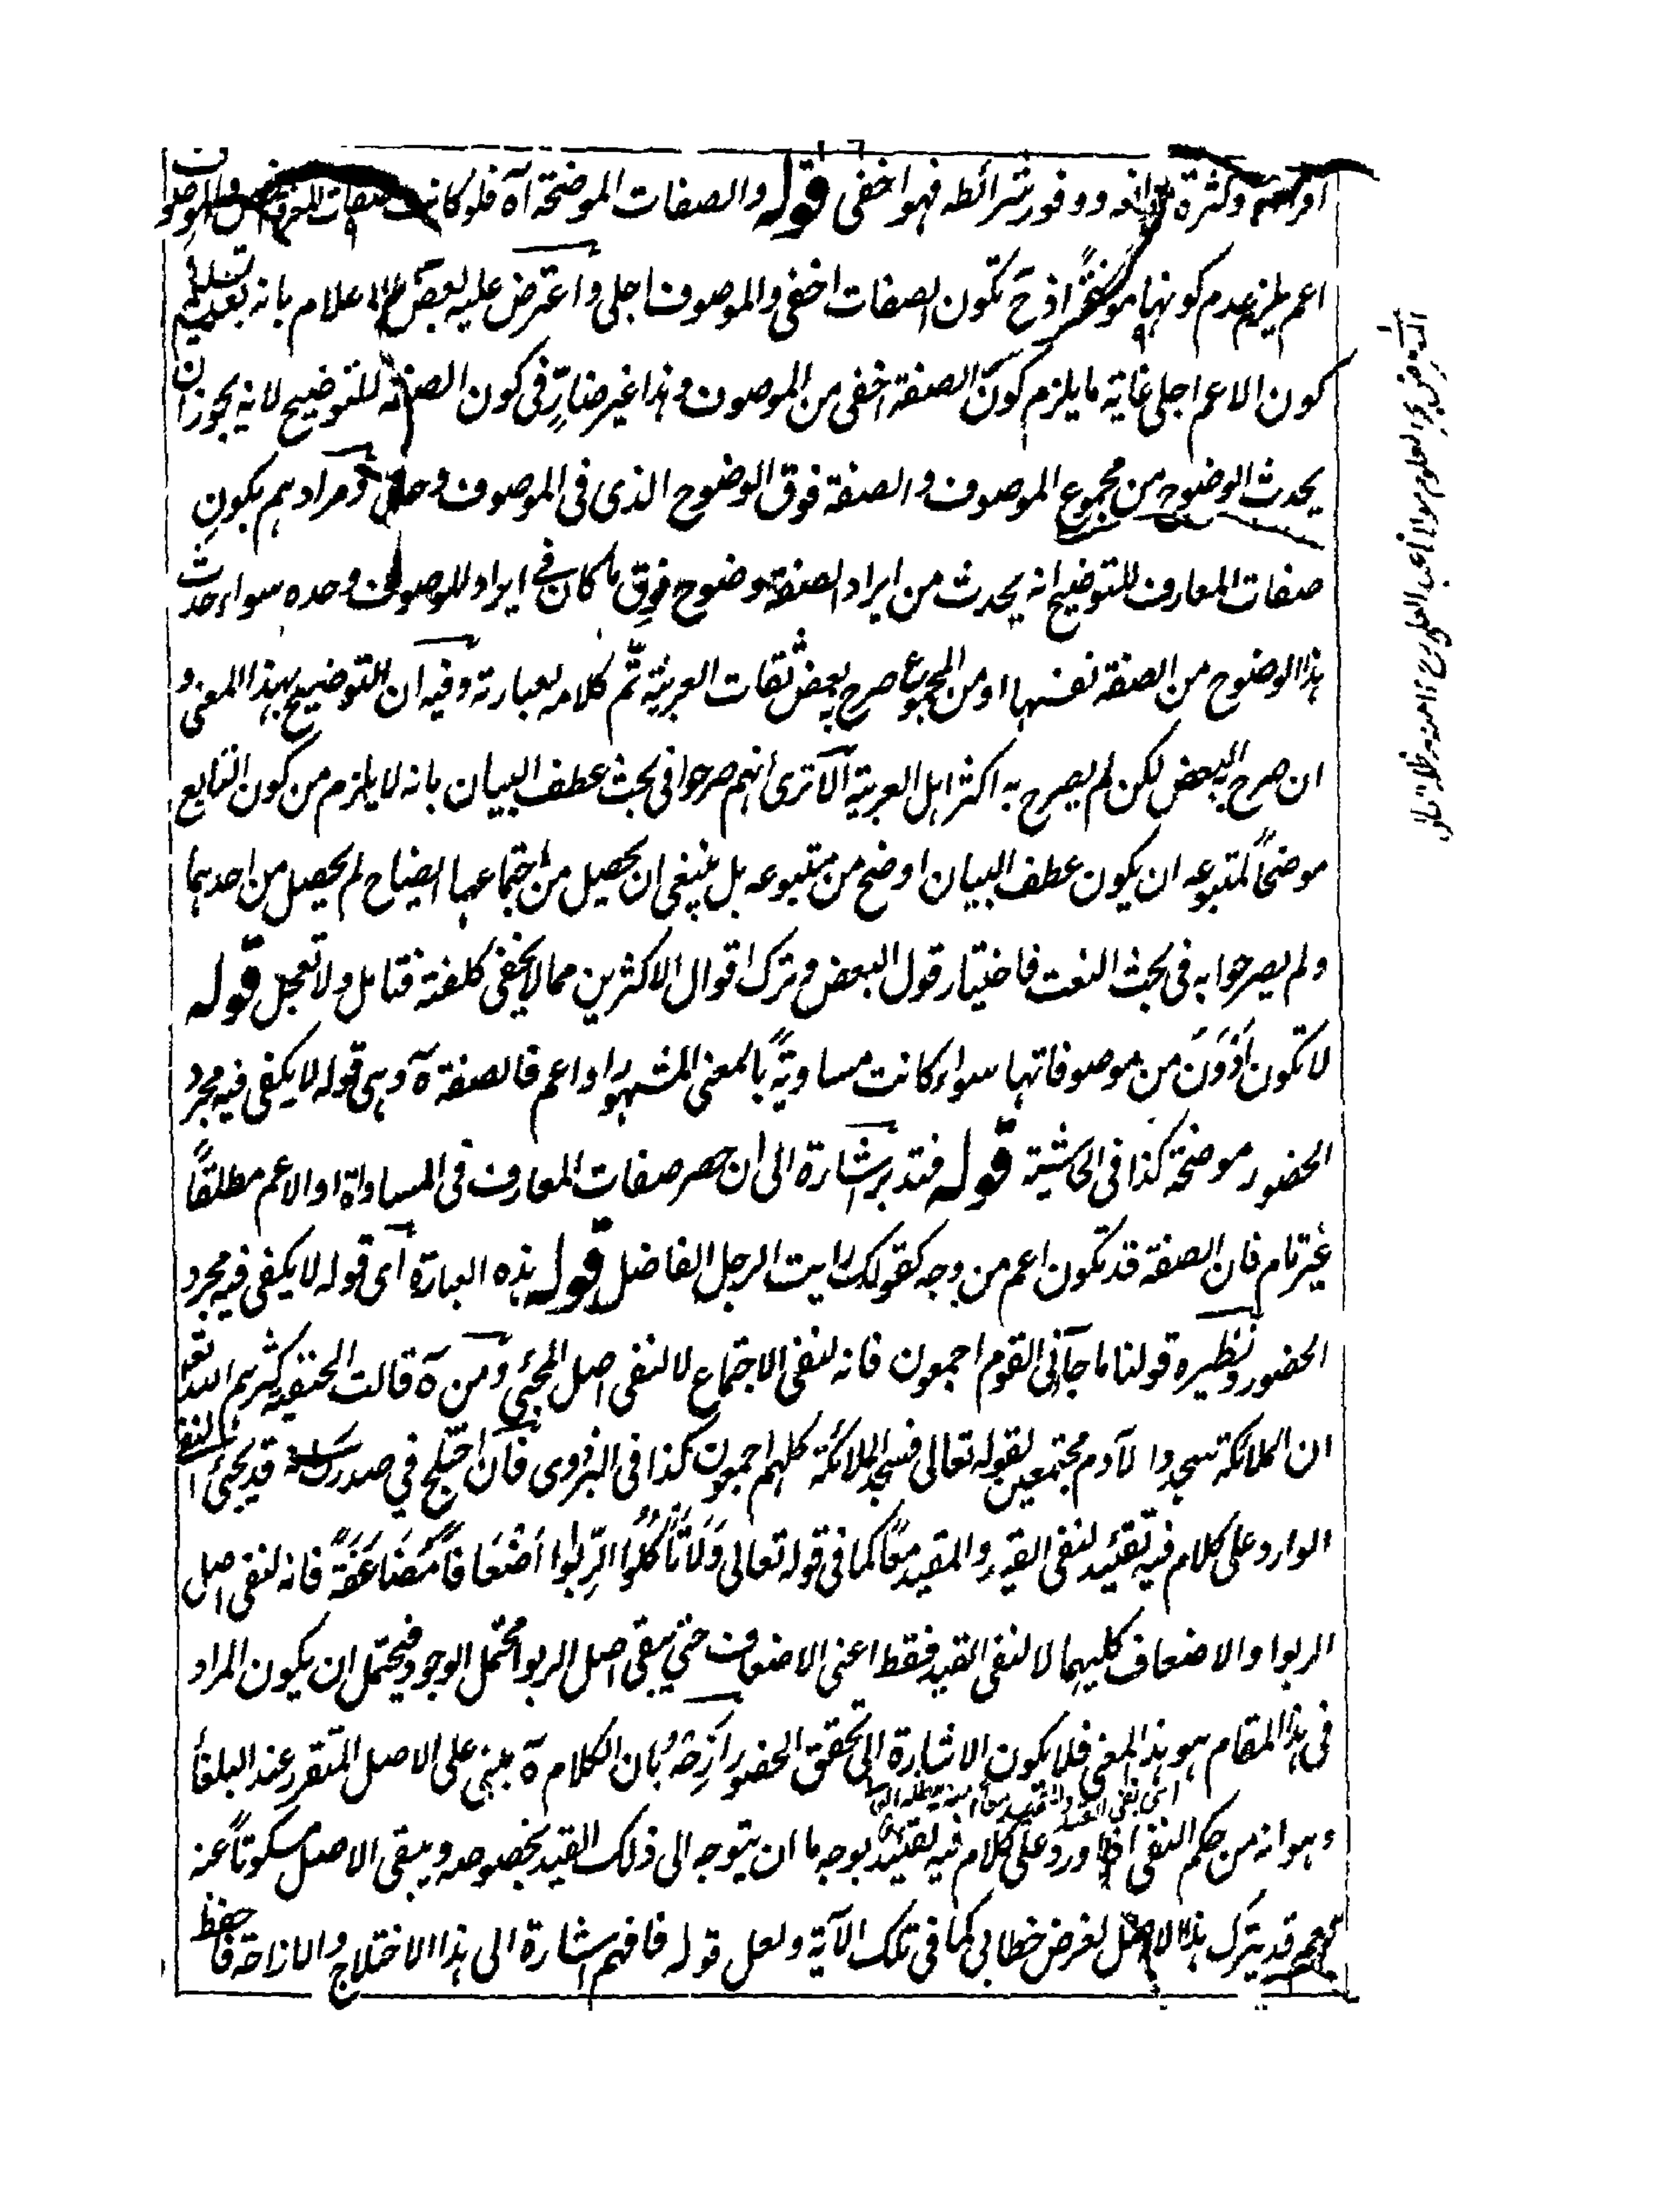 وكثرة موانعه ووفور شرائطه فهو اخفى قوله والصفات الموضحة آه فلو كانت صفات المعارف
اعم يلزم عدم كونها موضحة اذ ح تكون الصفات اخفى والموصوف اجلى واعترض عليه بعض الاعلام بانه بعد تسليم
كون الاعم اجلى غاية ما يلزم كون الصفة اخفى من الموصوف وهذا غير ضارّ فى كون الصفة للتوضيح لانه يجوز ان
يحدث الوضوح من مجموع الموصوف والصفة فوق الوضوح الذى فى الموصوف وحده ومرادهم بكون
صفات المعارف للتوضيح انه يحدث من ايراد الصفة وضوح فوق ما كان فى ايراد الموصوف وحده سواء حدث
هذا الوضوح من الصفة نفسها او من المجموع صرح به بعض ثقات العربية تم كلامه بعبارته وفيه ان التوضيح بهذا المعنى و
ان صرح به البعض لكن لم يصرح به اكثر اهل العربية الا ترى انهم صرحوا فى بحث عطف البيان بانه لا يلزم من كون التابع
موضحاً لمتبوعه ان يكون عطف البيان اوضح من متبوعه بل ينبغى ان يحصل من اجتماعهما ايضاح لم يحصل من احدهما
ولم يصرحوا به فى بحث النعت فاختيار قول البعض وترك اقوال الاكثرين مما لا يخفى كلفته فتامل ولا تعجل قوله
لا تكون اَدْوَنَ من موصوفاتها سواء كانت مساويةً بالمعنى المشهور او اعم فالصفة ة وهى قوله لا يكفى فيه مجرد
الحضور موضحة كذا فى الحاشية قوله فتدبر اشارة الى ان حصر صفات المعارف فى المساواة او الاعم مطلقاً
غير تام فان الصفة قد تكون اعم من وجه كقولك رايت الرجل الفاضل قوله هذه العبارة اى قوله لا يكفى فيه مجرد
الحضور ونظيره قولنا ما جاءنى القوم اجمعون فانه لنفى الاجتماع لا لنفى اصل المجئ ومن ة قالت الحنفية كثرهم الله تعالى
ان الملائكة سجدوا لآدم مجتمعين لقوله تعالى فسجد الملائكة كلهم اجمعون كذا فى البزدوى فان اختلج في صدرك انه قد يجئ النفى
الوارد على كلام فيه تقييد لنفى القيد والمقيد معاً كما فى قوله تعالى وَلَا تَأكُلُوا الرِّبٰوا اَضْعَافاً مُضَاعَفَةً فانه لنفى اصل
الربوا والاضعاف كليهما لا لنفى القيد فقط اعنى الاضعاف حتى يبقى اصل الربوا محتمل الوجود فيحتمل ان يكون المراد
فى هذا المقام هو هذا المعنى فلا يكون الاشارة الى تحقق الحضور اَزِحْهُ بان الكلام ة مبنى على الاصل المتقرر عند البلغاء
اى نفى القيد والمقيد معاً
وهو انه من حكم النفى اذا ورد على كلام فيه تقييد بوجه ما ان يتوجه الى ذلك القيد بخصوصه ويبقى الاصل مسكوتاً عنه
نعم قد يترك هذا الاصل لغرض خطابى كما فى تلك الآية ولعل قوله فافهم اشارة الى هذا الاختلاج والازاحة فاحفظ